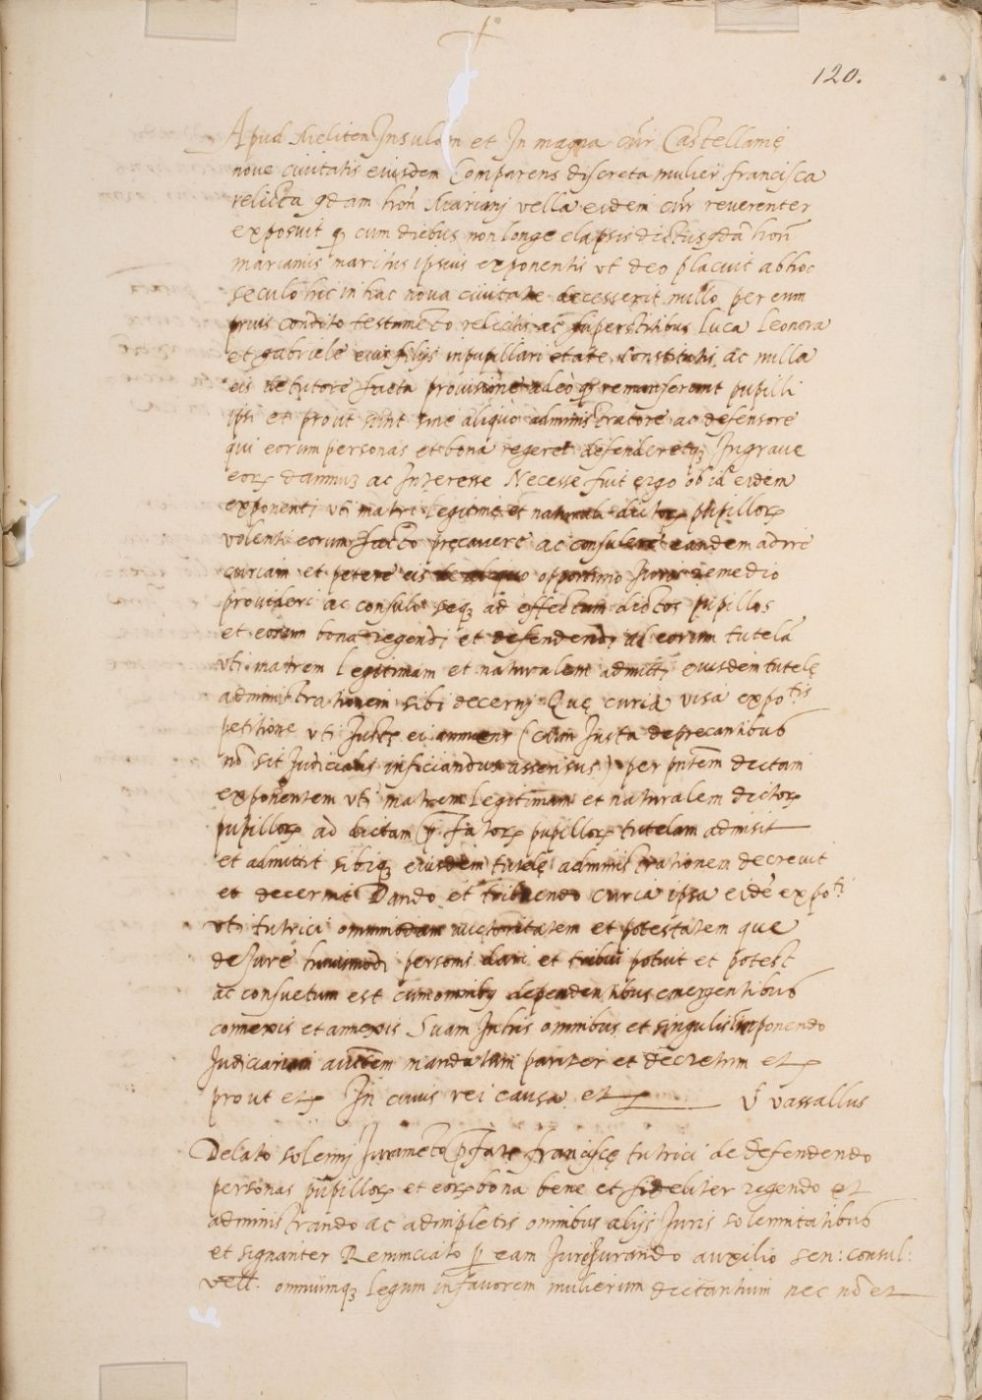 120.
Apud Meliten Insulam et In magna Cur Castellanię
noue ciuitatis eiusdem Comparens discreta mulier francisca
relicta qdam hon Marianj vella eidem cur reuerenter
exposuit q cum diebus non longe elapsis dictus qda hon
marianus maritus ipsius exponentis vt deo placuit ab hoc
seculo hic in hac noua ciuitate decesserit nullo per eum
prius condito testamēto relictis ac superstitibus luca leonora
et gabriele eius filijs in pupillari etate constitutis ac nulla
eis de tutore facta prouisione adeo q remanserunt pupilli
ipsi et prout sunt sine aliquo administratore ac defensore
qui eorum personas et bona regeret defenderetq In graue
eor damnu ac Interesse Necesse fuit ergo ob id eidem
exponenti vti matri legitime et naturali dictor pupillor
volenti eorum facto precauere ac consulere eandem adire
curiam et petere eis de aliquo opportuno Juris remedio
prouideri ac consuli seq ad effectum dictos pupillos
et eorum bona regendi et defendendi ad eorum tutela
vti matrem legitimam et naturalem admitti eiusdem tutelę
administrationem sibi decernj Que curia visa expotis
petitione vti Justa ei annuens (cum Justa deprecantibus
no sit Judicialis inficiandus assensus) per pntem dictam
exponentem vti matrem legitimam et naturalem dictor
pupillor ad dictam pfator pupillor tutelam admisit
et admittit sibiq eiusdem tutelę administrationem decreuit
et decernit Dando et tribuendo curia ipsa eide expoti
vti tutrici omnimodam auctoritatem et potestatem que
de Jure huiusmodi personis dari et tribui potuit et potest
ac consuetum est cum omnibus dependentibus emergentibus
connexis et annexis Suam In his omnibus et singulis Interponendo
Judiciariam autem mandatum pariter et decretum et
prout et In cuius rei causa et V vassallus
Delato solemnj Jurameto pfate francisce tutrici de defendendo
personas pupillor et eor bona bene et fideliter regendo et
administrando ac adimpletis omnibus alijs Juris solemnitatibus
et signanter Renunciato p eam Jurejurando auxilio sen: consul:
vell: omniumq legum in fauorem mulierum dictantium nec no et